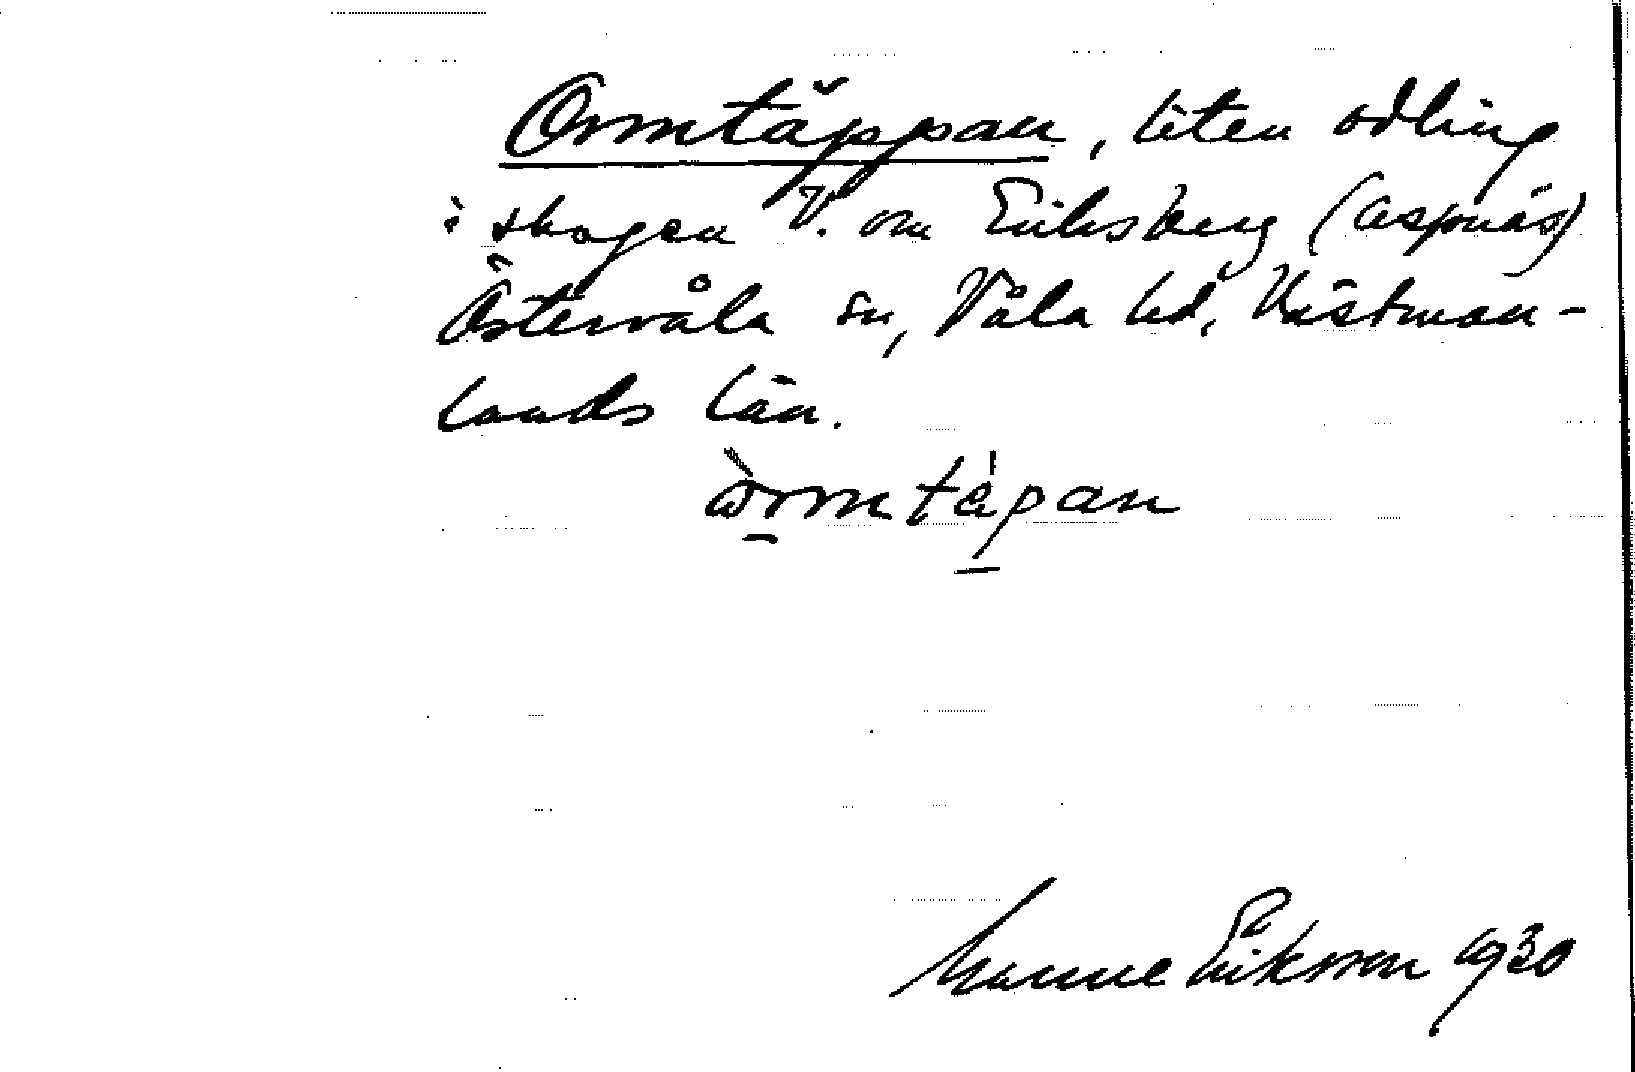 Ormtäppan, liten odling
i skogen V. om Eriksberg (Aspnäs)
Östervåla sn, Våla hd, Västman-
lands län.
òrmtápan
Manne Eriksson 1930